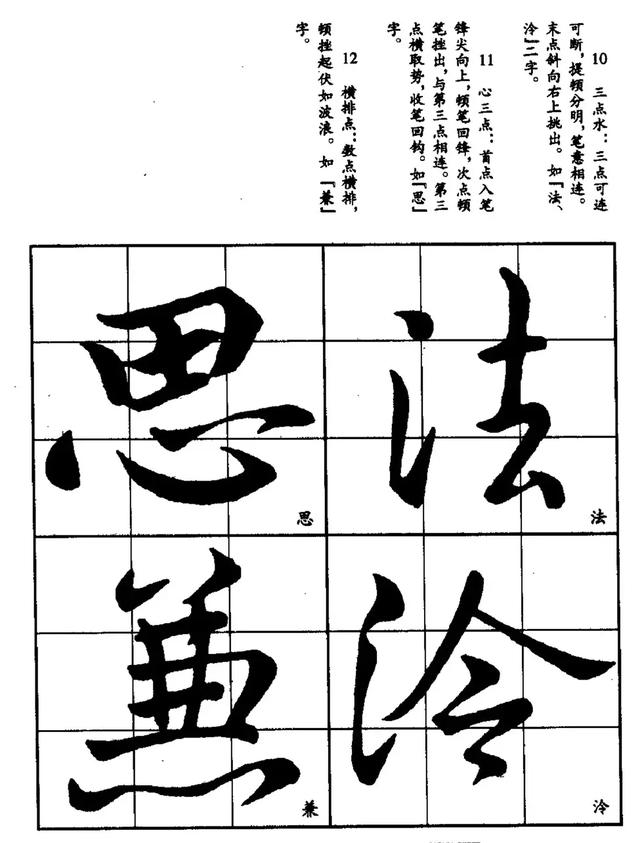 10 三点水：三点可连
可断，提顿分明，笔意相连。
末点斜向右上挑出。如「法、
泠」二字。
11 心三点：首点入笔
锋尖向上，顿笔回锋，次点顿
笔挫出，与第三点相连。第三
点横取势，收笔回钩。如「思」
字。
12 横排点：数点横排，
顿挫起伏如波浪。如「兼」
字。
法
法
泠
泠
思
思
兼
兼